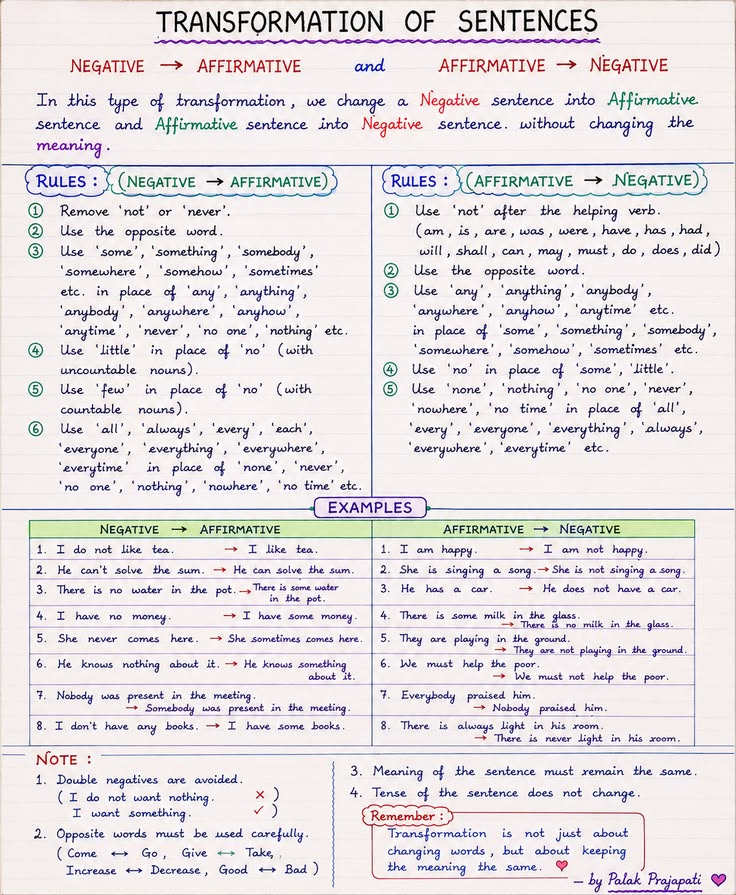 TRANSFORMATION OF SENTENCES
NEGATIVE → AFFIRMATIVE and AFFIRMATIVE → NEGATIVE
In this type of transformation, we change a Negative sentence into Affirmative
sentence and Affirmative sentence into Negative sentence. without changing the
meaning.
RULES : (NEGATIVE → AFFIRMATIVE)
① Remove 'not' or 'never'.
② Use the opposite word.
③ Use 'some', 'something', 'somebody',
'somewhere', 'somehow', 'sometimes'
etc. in place of 'any', 'anything',
'anybody', 'anywhere', 'anyhow',
'anytime', 'never', 'no one', 'nothing' etc.
④ Use 'little' in place of 'no' (with
uncountable nouns).
⑤ Use 'few' in place of 'no' (with
countable nouns).
⑥ Use 'all', 'always', 'every', 'each',
'everyone', 'everything', 'everywhere',
'everytime' in place of 'none', 'never',
'no one', 'nothing', 'nowhere', 'no time' etc.
RULES : (AFFIRMATIVE → NEGATIVE)
① Use 'not' after the helping verb.
(am, is, are, was, were, have, has, had,
will, shall, can, may, must, do, does, did)
② Use the opposite word.
③ Use 'any', 'anything', 'anybody',
'anywhere', 'anyhow', 'anytime' etc.
in place of 'some', 'something', 'somebody',
'somewhere', 'somehow', 'sometimes' etc.
④ Use 'no' in place of 'some', 'little'.
⑤ Use 'none', 'nothing', 'no one', 'never',
'nowhere', 'no time' in place of 'all',
'every', 'everyone', 'everything', 'always',
'everywhere', 'everytime' etc.
EXAMPLES
NEGATIVE → AFFIRMATIVE
1. I do not like tea. → I like tea.
2. He can't solve the sum. → He can solve the sum.
3. There is no water in the pot. → There is some water
in the pot.
4. I have no money. → I have some money.
5. She never comes here. → She sometimes comes here.
6. He knows nothing about it. → He knows something
about it.
7. Nobody was present in the meeting.
→ Somebody was present in the meeting.
8. I don't have any books. → I have some books.
AFFIRMATIVE → NEGATIVE
1. I am happy. → I am not happy.
2. She is singing a song. → She is not singing a song.
3. He has a car. → He does not have a car.
4. There is some milk in the glass.
→ There is no milk in the glass.
5. They are playing in the ground.
→ They are not playing in the ground.
6. We must help the poor.
→ We must not help the poor.
7. Everybody praised him.
→ Nobody praised him.
8. There is always light in his room.
→ There is never light in his room.
NOTE :
1. Double negatives are avoided.
( I do not want nothing. ✗ )
I want something. ✓ )
2. Opposite words must be used carefully.
( Come ↔ Go, Give ↔ Take,
Increase ↔ Decrease, Good ↔ Bad )
3. Meaning of the sentence must remain the same.
4. Tense of the sentence does not change.
Remember :
Transformation is not just about
changing words, but about keeping
the meaning the same.
— by Palak Prajapati